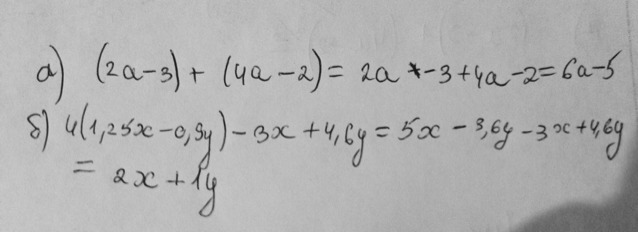 а) (2a-3)+(4a-2)= 2a -3+4a-2=6a-5
б) 4(1,25x-0,9y)-3x+4,6y=5x-3,6y-3x+4,6y
= 2x+1y